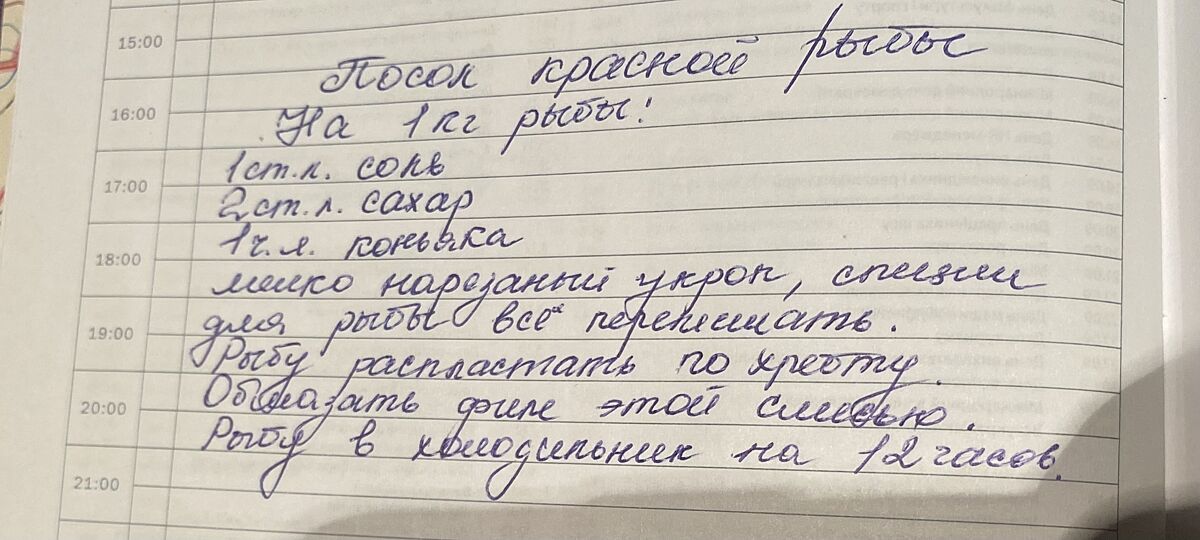 15:00
Посол красной рыбы
16:00
На 1 кг рыбы:
1 ст.л. соль
17:00
2 ст.л. сахар
1 ч.л. коньяка
18:00
мелко нарезаный укроп, специи
19:00
для рыбы всё перемешать.
Рыбу распластать по хребту.
20:00
Обмазать филе этой смесью.
Рыбу в холодильник на 12 часов.
21:00